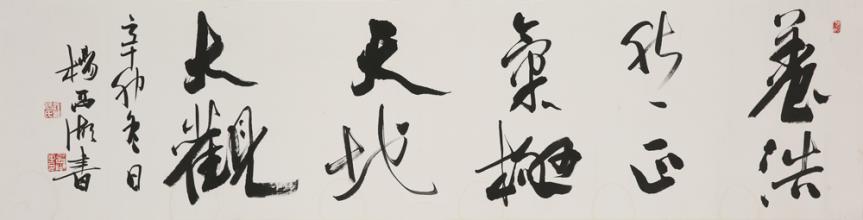 養浩
然正
氣極
天地
大觀
辛卯冬日
楊西湖書